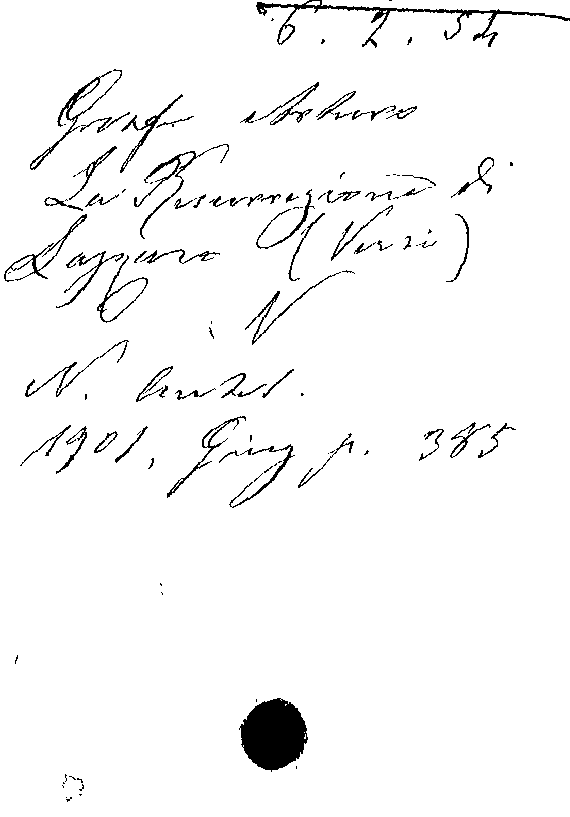 6. 2. 54
Graf Arturo
La Resurrezione di
Lazzaro (Versi)
V
N. Antol.
1901, Giug p. 385